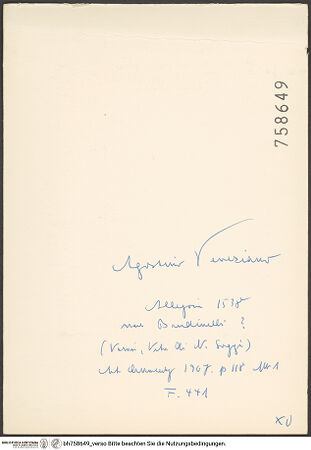 758649
Agostino Veneziano
Allegorie 1538
nach Bandinelli ?
(Vasari, Vita di N. Soggi)
1907. p 118
F. 441
XU
bh758649_verso Bitte beachten Sie die Nutzungsbedingungen.